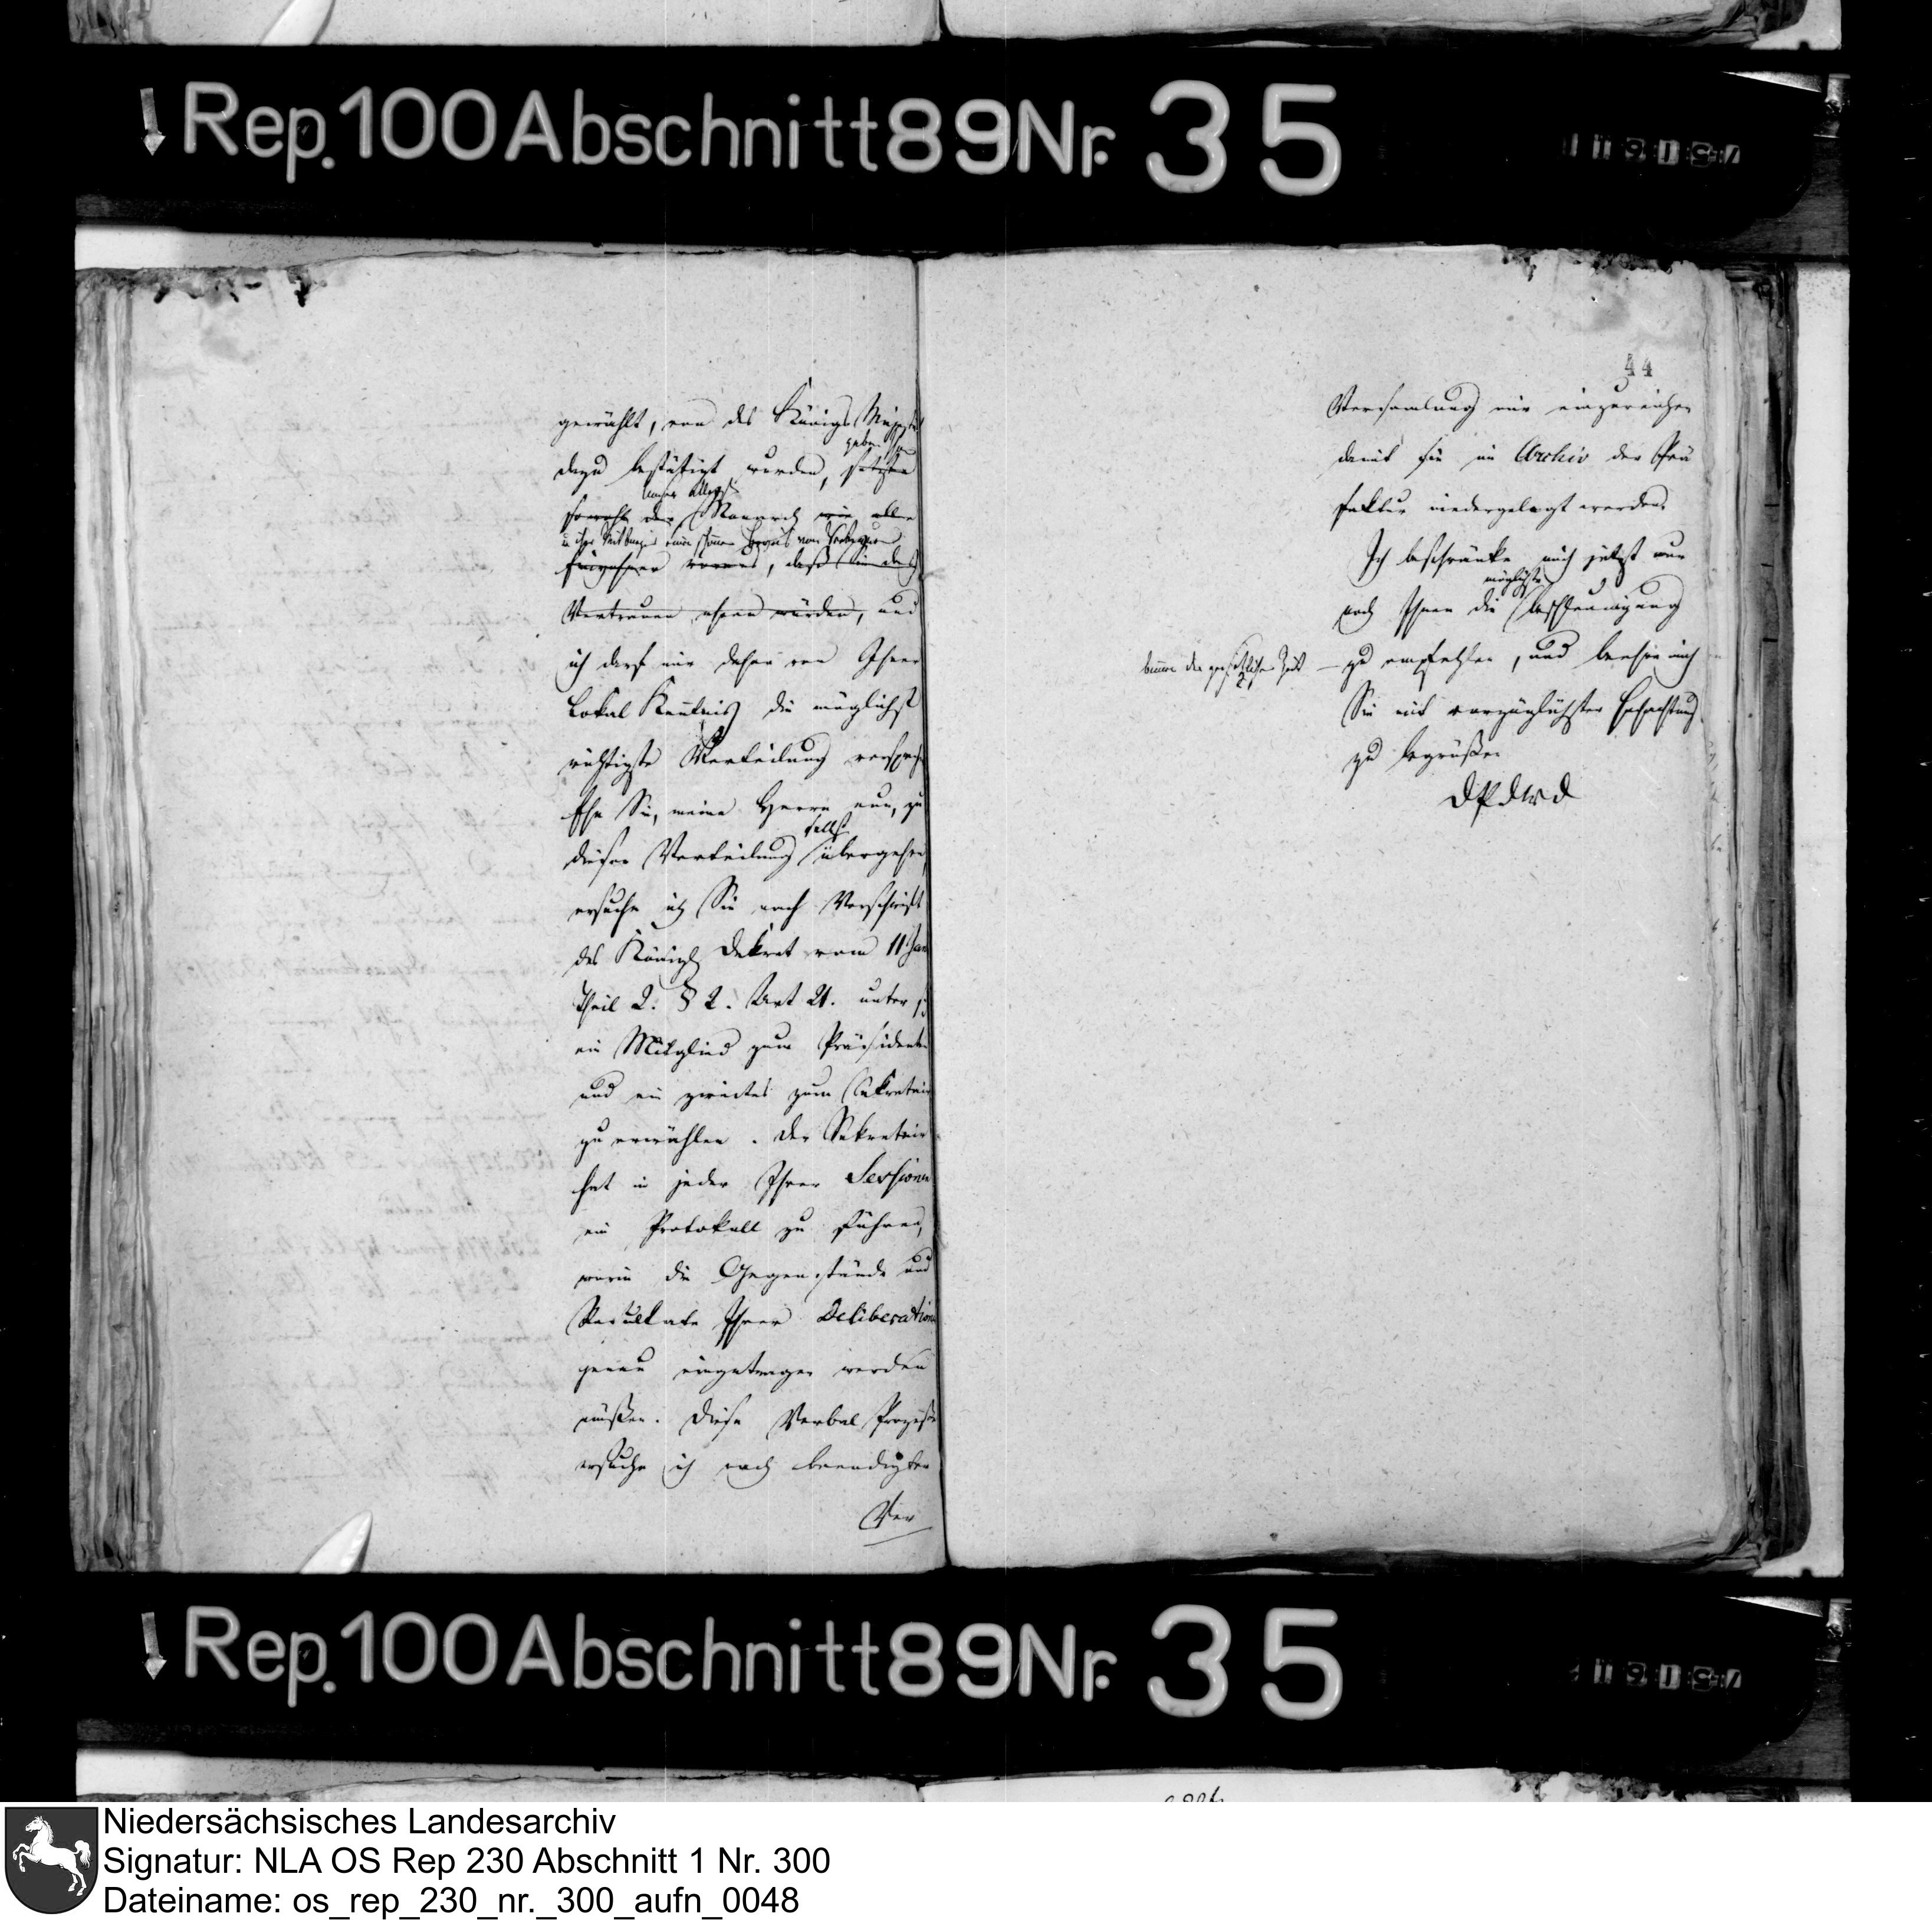 Rep. 100 Abschnitt 89 Nr. 35
gewählt, von des Königs Majestät
geben
dazu bestätigt worden, setzen
unser Allergst
sowohl der Monarch wie alle
in ihre einen schönen Beweis von
voraus, daß Sie das
Vertrauen ehren würden, und
ich darf mir daher von Ihrer
Lokal Kentnis die möglichst
richtigste Verteilung versprechen
Ehe Sie, meine Herrn nun, zu
selbst
dieser Verteilung übergehen,
ersuche ich Sie nach Vorschrift
des Königl Dekret vom 11 Jan
Theil 2. § 2. Art 21. unter sich
ein Mitglied zum Präsidenten
und ein zweites zum Sekretair
zu erwählen. Der Sekretair
hat in jeder Ihrer Sessionen
ein Protokoll zu führen,
worin die Gegenstände und
Resultate Ihrer Deliberationen
genau eingetragen werden
müßen. Diese Verbal Prozeße
ersuche ich nach beendigter
Ver
44
Versamlung mir einzureichen
damit sie im Archiv der Prä
fektur niedergelegt werden.
Ich beschränke mich jetzt nur
möglichste
noch Ihnen die Beschleunigung
binnen der gesetzlichen Zeit
zu empfehlen, und beehre mich
Sie mit vorzüglichster Hochachtung
zu begrüßen
DPdWD
Rep. 100 Abschnitt 89 Nr. 35
Niedersächsisches Landesarchiv
Signatur: NLA OS Rep 230 Abschnitt 1 Nr. 300
Dateiname: os_rep_230_nr._300_aufn_0048